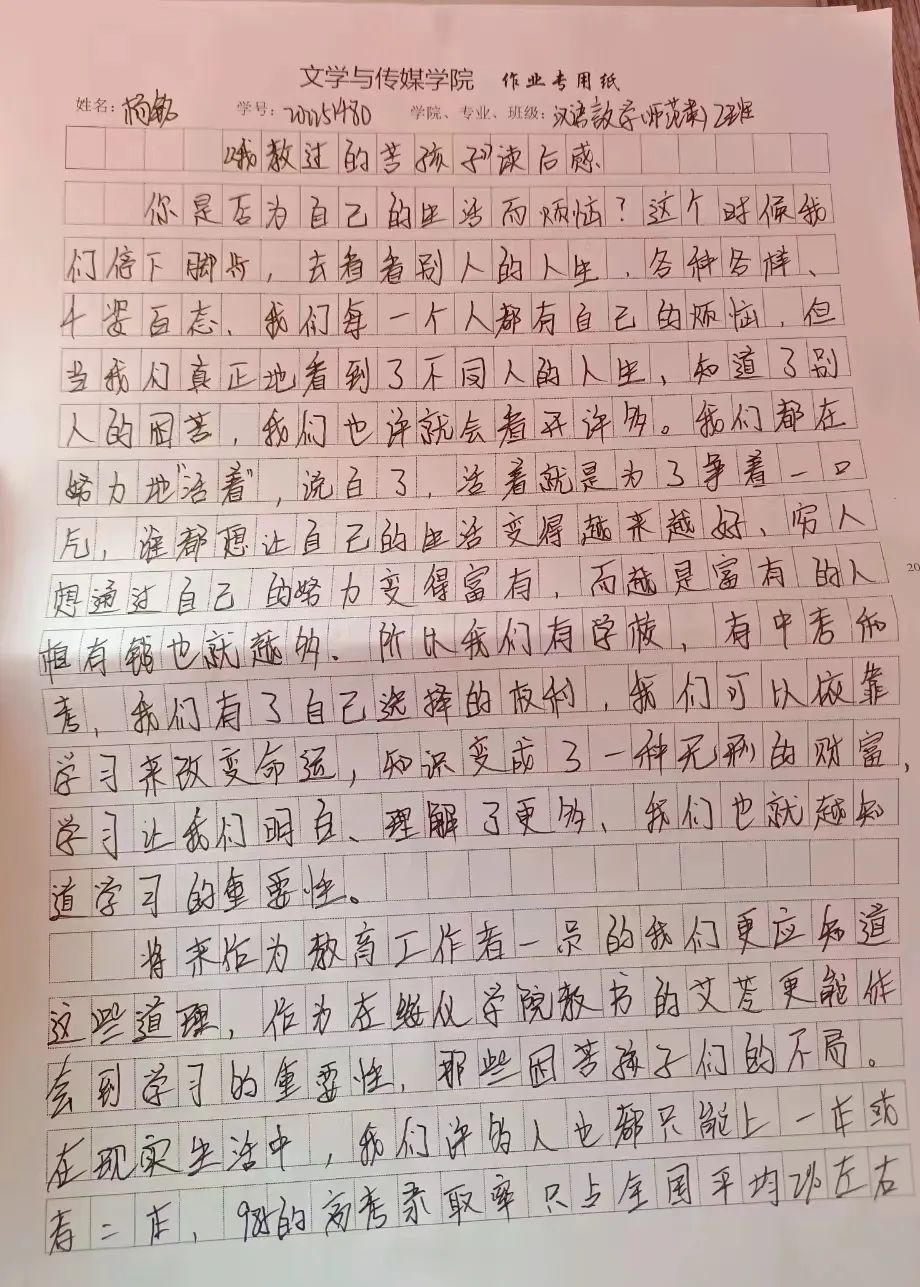 文学与传媒学院 作业专用纸
姓名：杨敏 学号：20225480 学院、专业、班级：汉语教学(师范类)2班
《我教过的苦孩子》读后感
你是否为自己的生活而烦恼？这个时候我
们停下脚步，去看看别人的人生，各种各样、
千姿百态，我们每一个人都有自己的烦恼，但
当我们真正地看到了不同人的人生，知道了别
人的困苦，我们也许就会看开许多。我们都在
努力地“活着”，说白了，活着就是为了争着一口
气，谁都想让自己的生活变得越来越好、穷人
想通过自己的努力变得富有，而越是富有的人
拥有钱也就越多、所以我们有学校，有中考和
考，我们有了自己选择的权利，我们可以依靠
学习来改变命运，知识变成了一种无形的财富，
学习让我们明白、理解了更多、我们也就越知
道学习的重要性。
将来作为教育工作者一员的我们更应知道
这些道理，作为在绥化学院教书的艾苓更能体
会到学习的重要性，那些困苦孩子们的不易。
在现实生活中，我们许多人也都只能上一本或
者二本，985的高考录取率只占全国平均2%左右
20